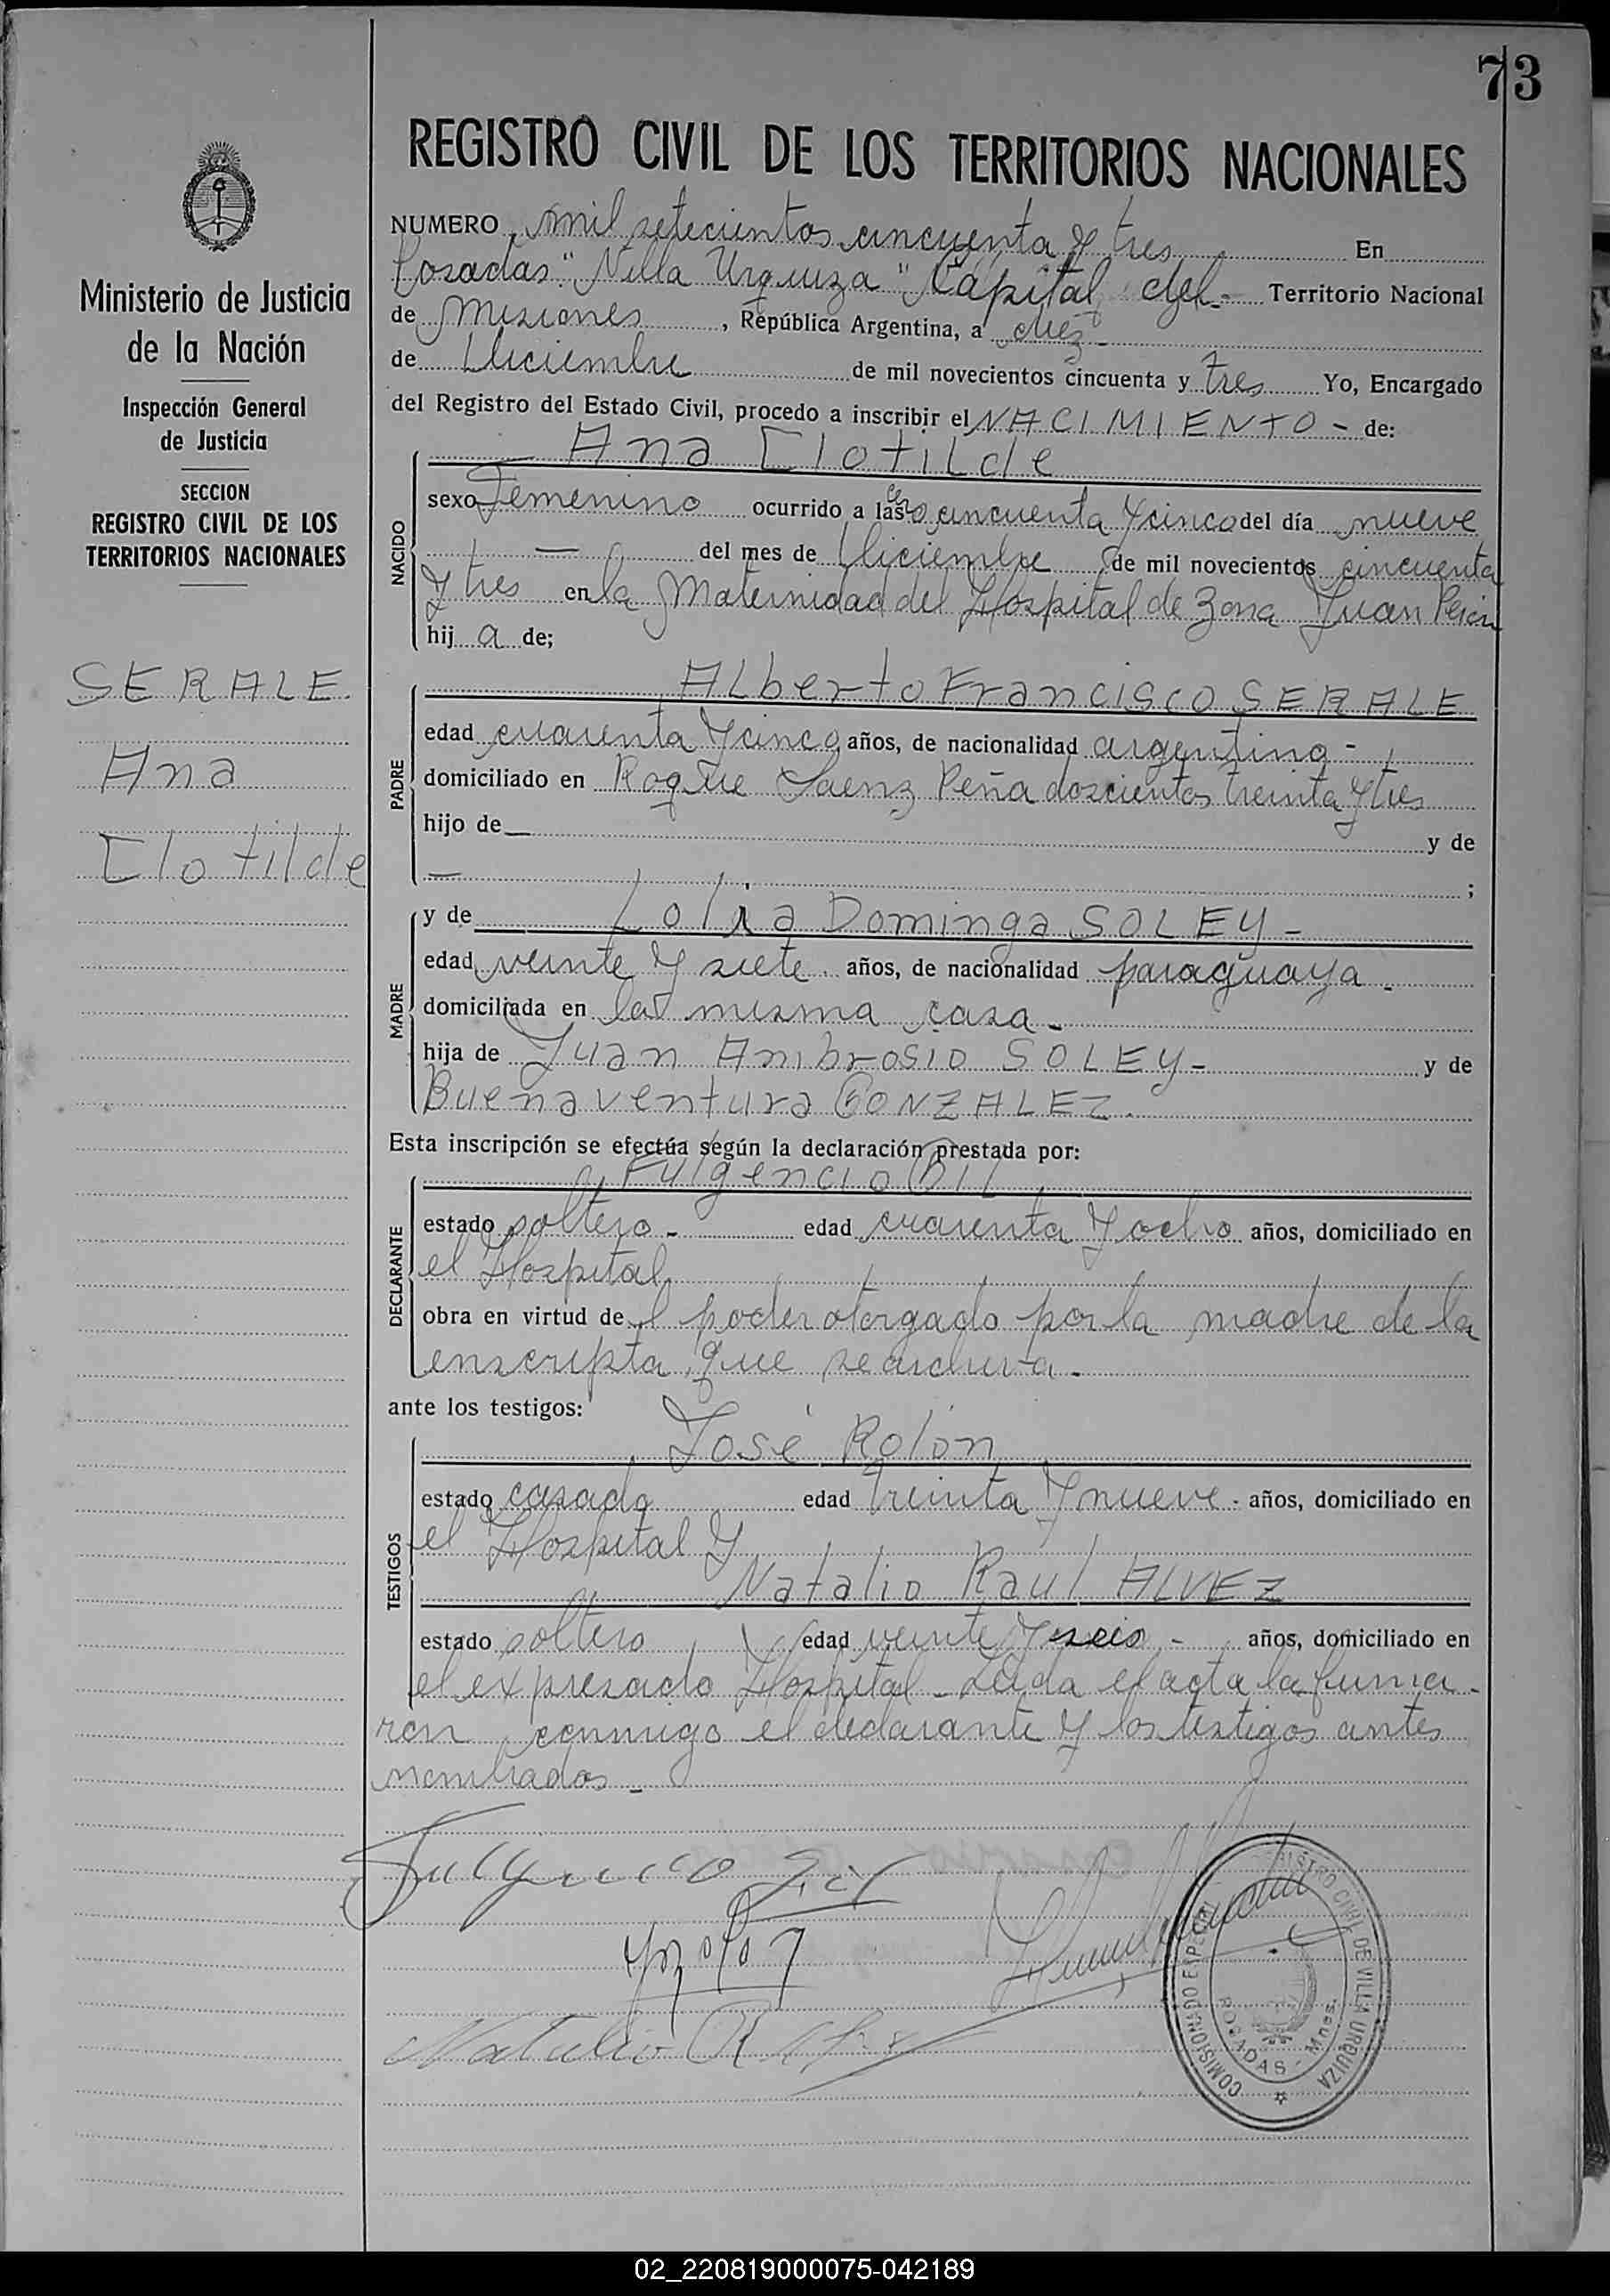 73
REGISTRO CIVIL DE LOS TERRITORIOS NACIONALES
Ministerio de Justicia
de la Nación
Inspección General
de Justicia
SECCION
REGISTRO CIVIL DE LOS
TERRITORIOS NACIONALES
SERALE
Ana
Clotilde
NUMERO mil setecientos cincuenta y tres En
Posadas "Villa Urquiza" Capital del - Territorio Nacional
de Misiones, República Argentina, a diez -
de Diciembre de mil novecientos cincuenta y tres Yo, Encargado
del Registro del Estado Civil, procedo a inscribir el NACIMIENTO - de:
Ana Clotilde
NACIDO
sexo Femenino ocurrido a las cero cincuenta y cinco del día nueve
— del mes de Diciembre de mil novecientos cincuenta
y tres en la Maternidad del Hospital de Zona Juan Perón
hij a de;
PADRE
Alberto Francisco SERALE
edad cuarenta y cinco años, de nacionalidad argentino -
domiciliado en Roque Saenz Peña doscientos treinta y tres
hijo de — y de
— ;
MADRE
y de Dominga SOLEY -
edad veinte y siete años, de nacionalidad paraguaya -
domiciliada en la misma casa -
hija de Juan Ambrosio SOLEY - y de
Buenaventura GONZALEZ.
Esta inscripción se efectúa según la declaración prestada por:
DECLARANTE
Fulgencio Gil
estado soltero - edad cuarenta y ocho años, domiciliado en
el Hospital
obra en virtud de l poder otorgado por la madre de la
enscripta que se archiva -
ante los testigos:
TESTIGOS
José Rolón
estado casado edad treinta y nueve - años, domiciliado en
el Hospital y
Natalio Raul ALVEZ
estado soltero edad veinte y seis - años, domiciliado en
el expresado Hospital - Leida el acta la firma-
ron conmigo el declarante y los testigos antes
nombrados -
Fulgencio Gil
Natalio R
REGISTRO CIVIL DE VILLA URQUIZA
COMISIONADO ESPECIAL
POSADAS - Mnes.
02_220819000075-042189